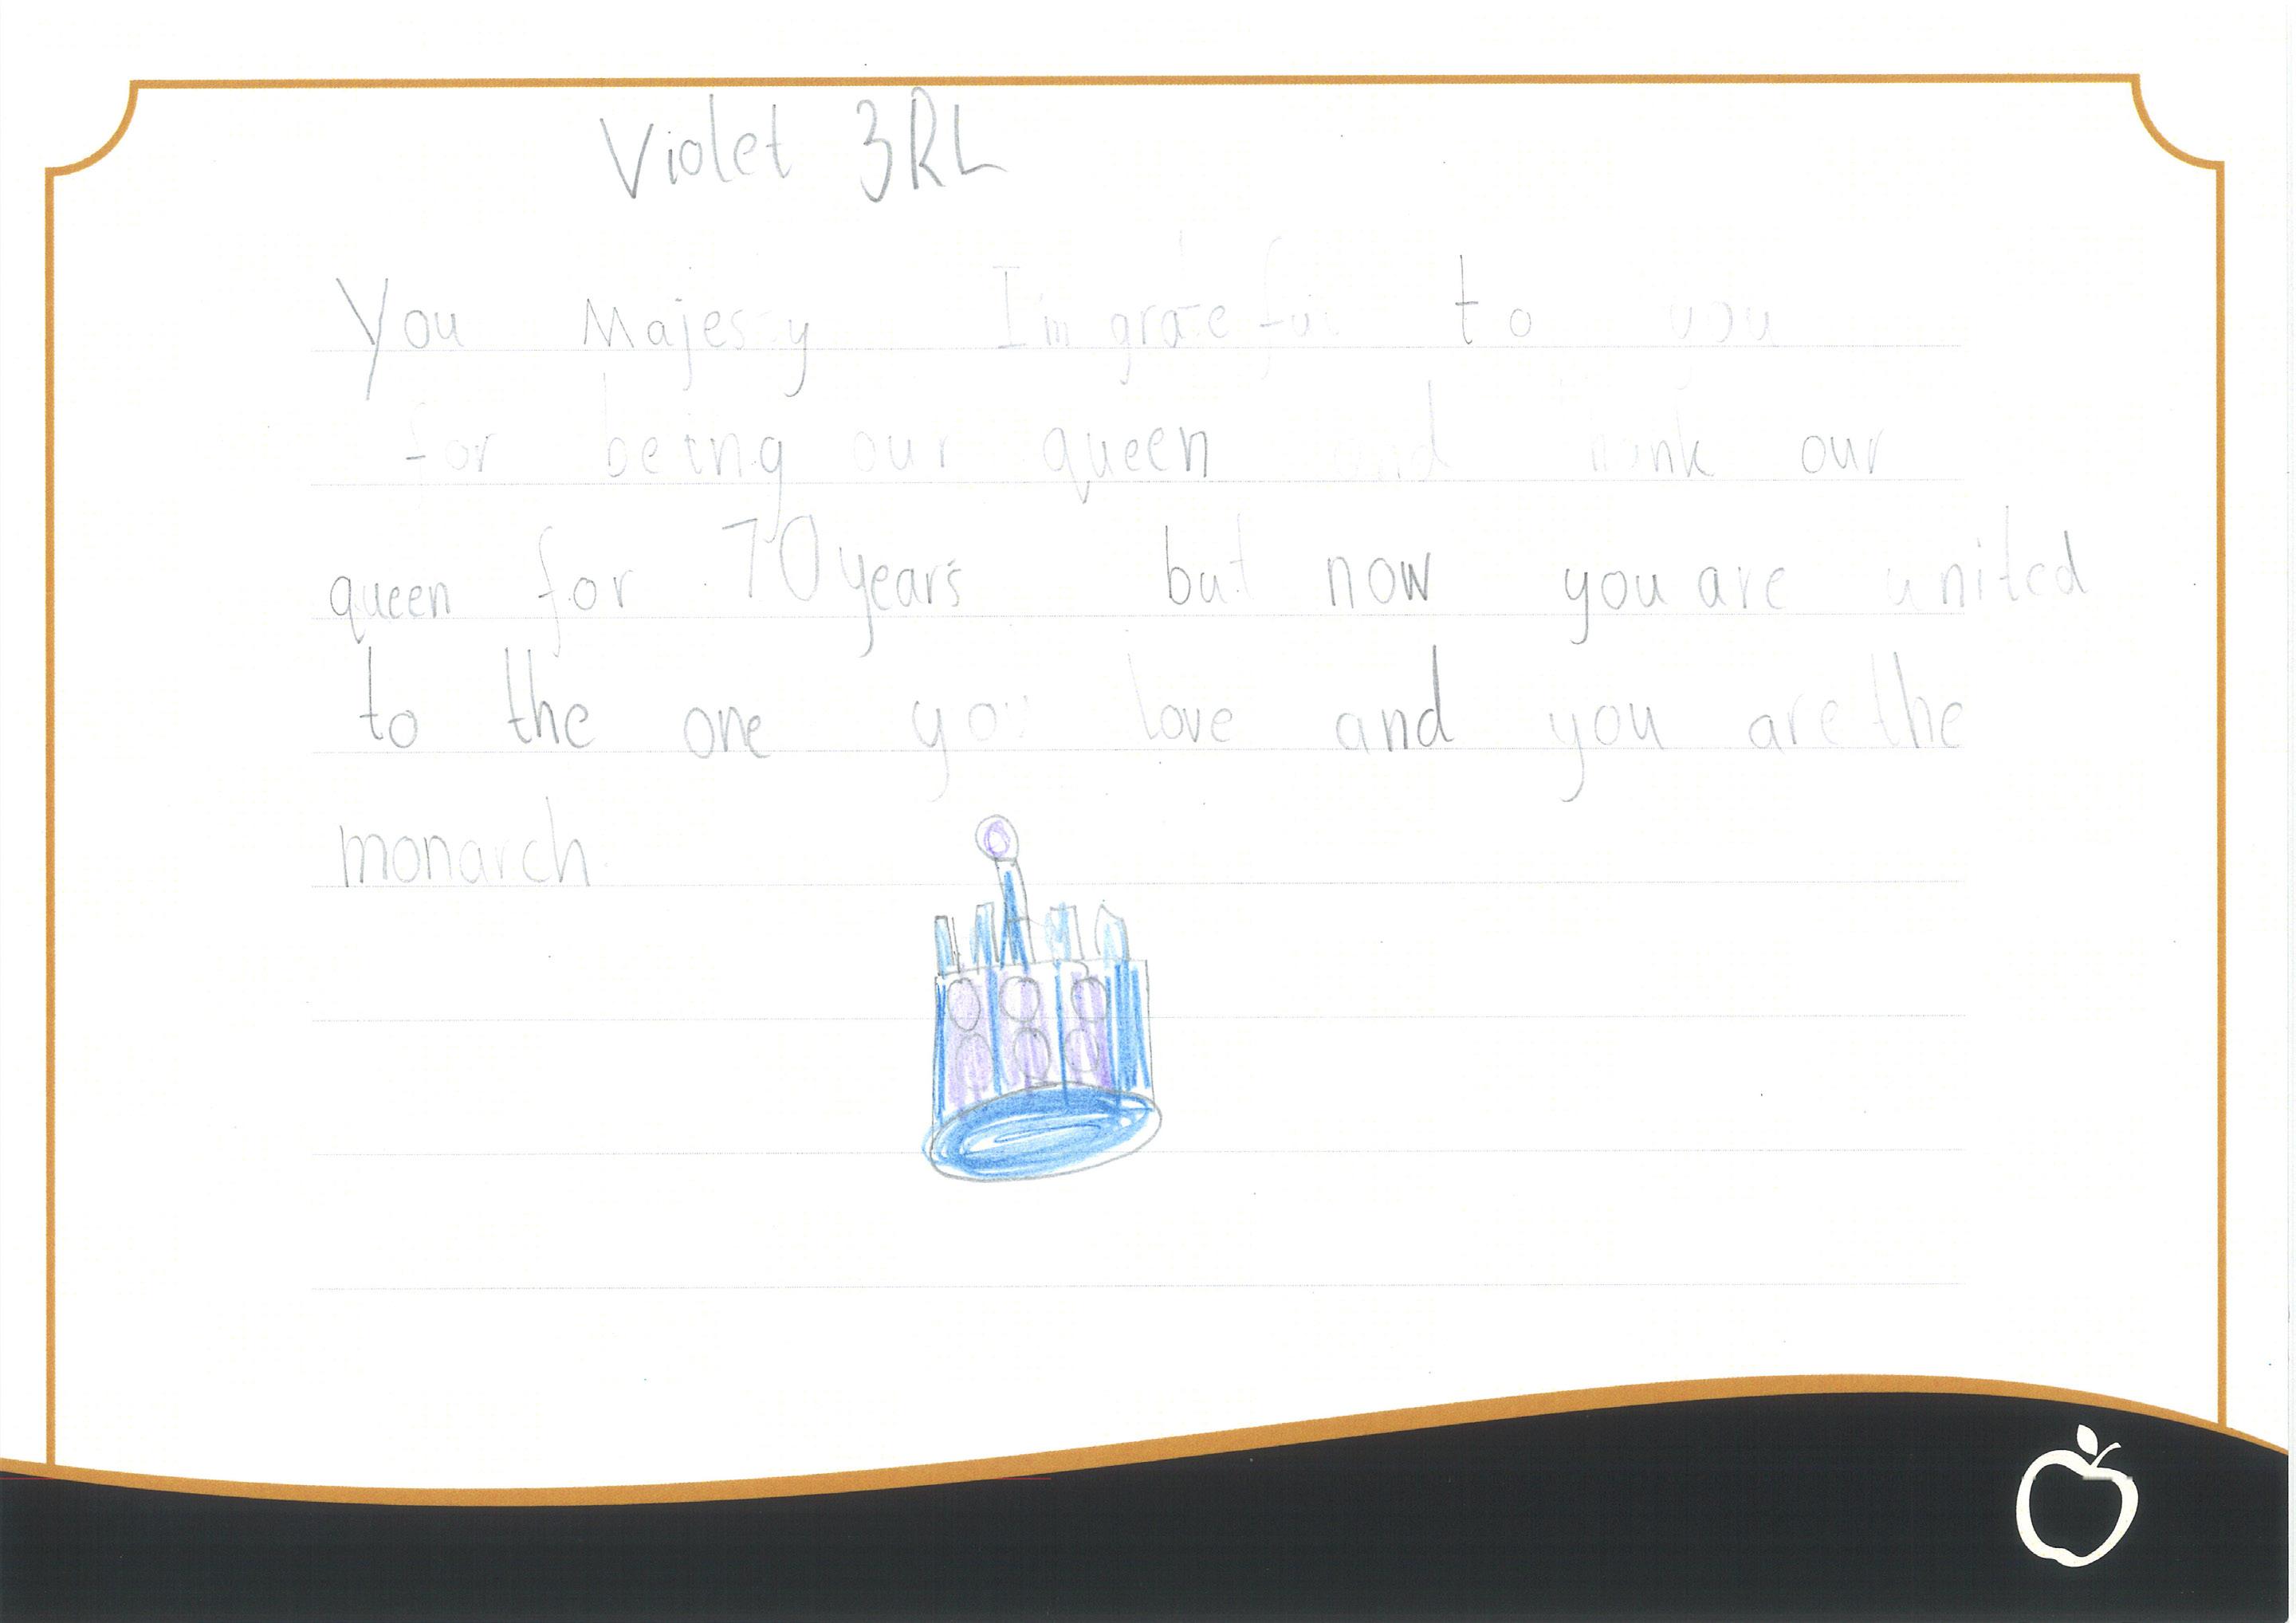 Violet 3RL
You Majesty I'm grateful to you
for being our queen and our
queen for 70 years but now you are united
to the one you love and you are the
monarch.